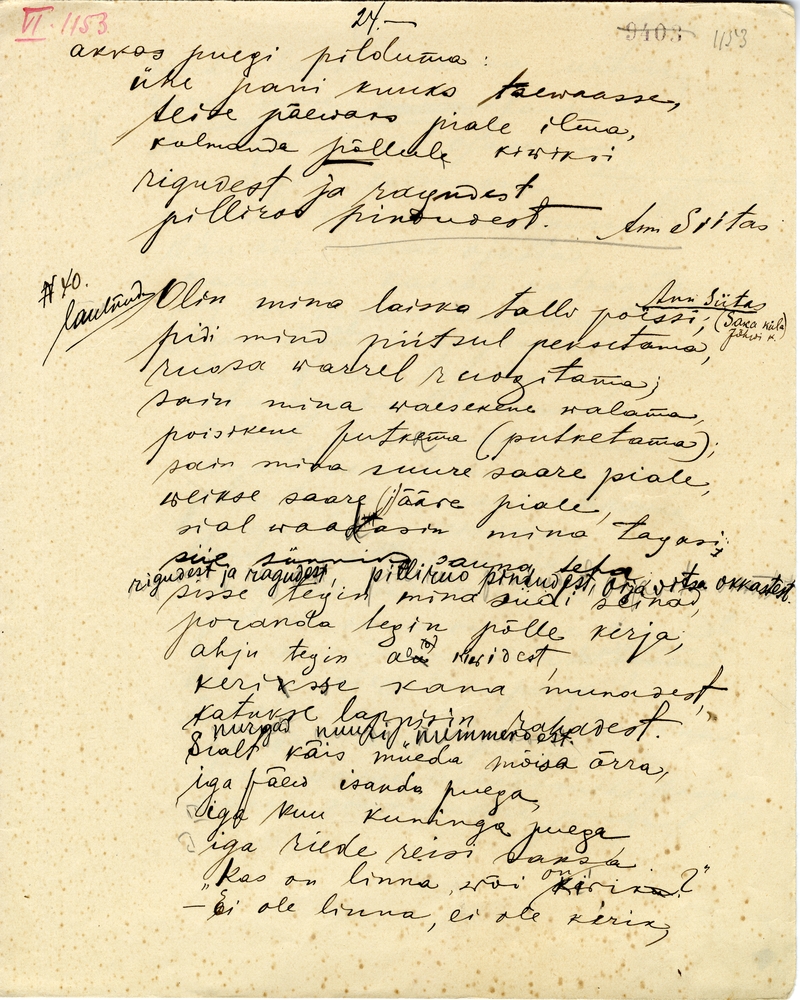 VI. 1153.
24.—
9403 1153
akkas puegi pilduma:
ühe pani kuuks taewaasse,
teise päewaks piale ilma,
kolmanda põllule kiwiksi
rigudest ja ragudest
pilliroo pindudest. Ann Siitas
N 40.
laulinud
Ann Siitas
(Saka küla
Jõhwi k.
Olin mina laiska talli poissi;
pidi mind piitsul peksetama,
ruosa warrel ruogitama;
sain mina waesekene walama,
poisikene putkema (putketama);
sain mina suure saare piale,
weikse saare (j)ääre piale,
sial waatasin mina tagasi;
siie sünnib sauna teha
rigudest ja ragudest, pilliruo pinnudest, orja witsa okkastest.
sisse tegin mina siidi seinad,
poranda tegin põlle kirja,
ahju tegin kividest,
keriksse kana munasest,
katukse lappisin rahadest.
nurgad nuuri nummerdest.
Sialt käis müeda mõisa ärra,
iga päew isanda puega,
iga kuu kuninga puega
iga riede reisi saksa
„Kas on linna, wõi on kirik?"
— Ei ole linna, ei ole kerik,